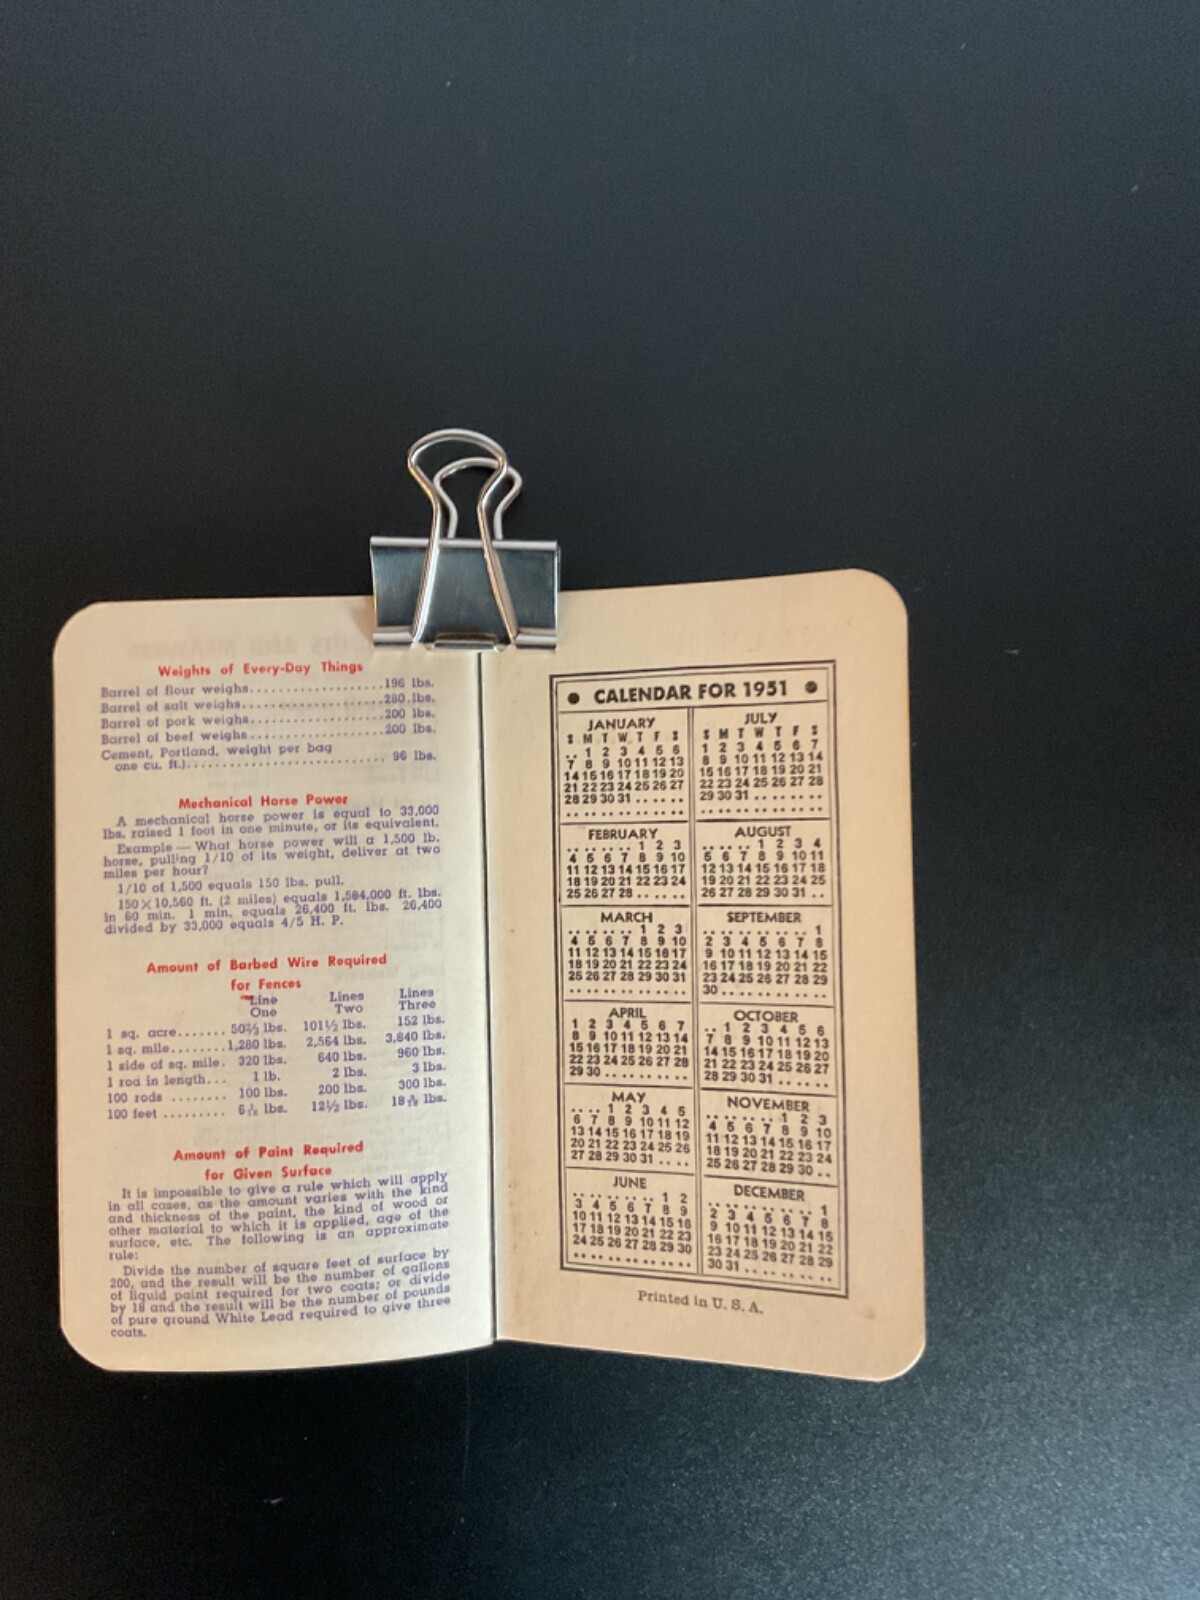 Weights of Every-Day Things
Barrel of flour weighs..................196 lbs.
Barrel of salt weighs...................280 lbs.
Barrel of pork weighs..................200 lbs.
Barrel of beef weighs..................200 lbs.
Cement, Portland, weight per bag
one cu. ft.)........................... 96 lbs.
Mechanical Horse Power
A mechanical horse power is equal to 33,000
lbs. raised 1 foot in one minute, or its equivalent.
Example — What horse power will a 1,500 lb.
horse, pulling 1/10 of its weight, deliver at two
miles per hour?
1/10 of 1,500 equals 150 lbs. pull.
150×10,560 ft. (2 miles) equals 1,584,000 ft. lbs.
in 60 min. 1 min. equals 26,400 ft. lbs. 26,400
divided by 33,000 equals 4/5 H. P.
Amount of Barbed Wire Required
for Fences
Line Lines Lines
One Two Three
1 sq. acre....... 50⅔ lbs. 101½ lbs. 152 lbs.
1 sq. mile........1,280 lbs. 2,564 lbs. 3,840 lbs.
1 side of sq. mile. 320 lbs. 640 lbs. 960 lbs.
1 rod in length... 1 lb. 2 lbs. 3 lbs.
100 rods ........ 100 lbs. 200 lbs. 300 lbs.
100 feet ......... lbs. 12½ lbs. lbs.
Amount of Paint Required
for Given Surface
It is impossible to give a rule which will apply
in all cases, as the amount varies with the kind
and thickness of the paint, the kind of wood or
other material to which it is applied, age of the
surface, etc. The following is an approximate
rule:
Divide the number of square feet of surface by
200, and the result will be the number of gallons
of liquid paint required for two coats; or divide
by 18 and the result will be the number of pounds
of pure ground White Lead required to give three
coats.
● CALENDAR FOR 1951 ●
JANUARY
S M T W T F S
.. 1 2 3 4 5 6
7 8 9 10 11 12 13
14 15 16 17 18 19 20
21 22 23 24 25 26 27
28 29 30 31 .. .. ..
FEBRUARY
.. .. .. .. 1 2 3
4 5 6 7 8 9 10
11 12 13 14 15 16 17
18 19 20 21 22 23 24
25 26 27 28 .. .. ..
MARCH
.. .. .. .. 1 2 3
4 5 6 7 8 9 10
11 12 13 14 15 16 17
18 19 20 21 22 23 24
25 26 27 28 29 30 31
.. .. .. .. .. .. ..
APRIL
1 2 3 4 5 6 7
8 9 10 11 12 13 14
15 16 17 18 19 20 21
22 23 24 25 26 27 28
29 30 .. .. .. .. ..
MAY
.. .. 1 2 3 4 5
6 7 8 9 10 11 12
13 14 15 16 17 18 19
20 21 22 23 24 25 26
27 28 29 30 31 .. ..
JUNE
.. .. .. .. .. 1 2
3 4 5 6 7 8 9
10 11 12 13 14 15 16
17 18 19 20 21 22 23
24 25 26 27 28 29 30
.. .. .. .. .. .. ..
JULY
S M T W T F S
1 2 3 4 5 6 7
8 9 10 11 12 13 14
15 16 17 18 19 20 21
22 23 24 25 26 27 28
29 30 31 .. .. .. ..
.. .. .. .. .. .. ..
AUGUST
.. .. .. 1 2 3 4
5 6 7 8 9 10 11
12 13 14 15 16 17 18
19 20 21 22 23 24 25
26 27 28 29 30 31 ..
SEPTEMBER
.. .. .. .. .. .. 1
2 3 4 5 6 7 8
9 10 11 12 13 14 15
16 17 18 19 20 21 22
23 24 25 26 27 28 29
30 .. .. .. .. .. ..
OCTOBER
.. 1 2 3 4 5 6
7 8 9 10 11 12 13
14 15 16 17 18 19 20
21 22 23 24 25 26 27
28 29 30 31 .. .. ..
NOVEMBER
.. .. .. .. 1 2 3
4 5 6 7 8 9 10
11 12 13 14 15 16 17
18 19 20 21 22 23 24
25 26 27 28 29 30 ..
DECEMBER
.. .. .. .. .. .. 1
2 3 4 5 6 7 8
9 10 11 12 13 14 15
16 17 18 19 20 21 22
23 24 25 26 27 28 29
30 31 .. .. .. .. ..
Printed in U. S. A.